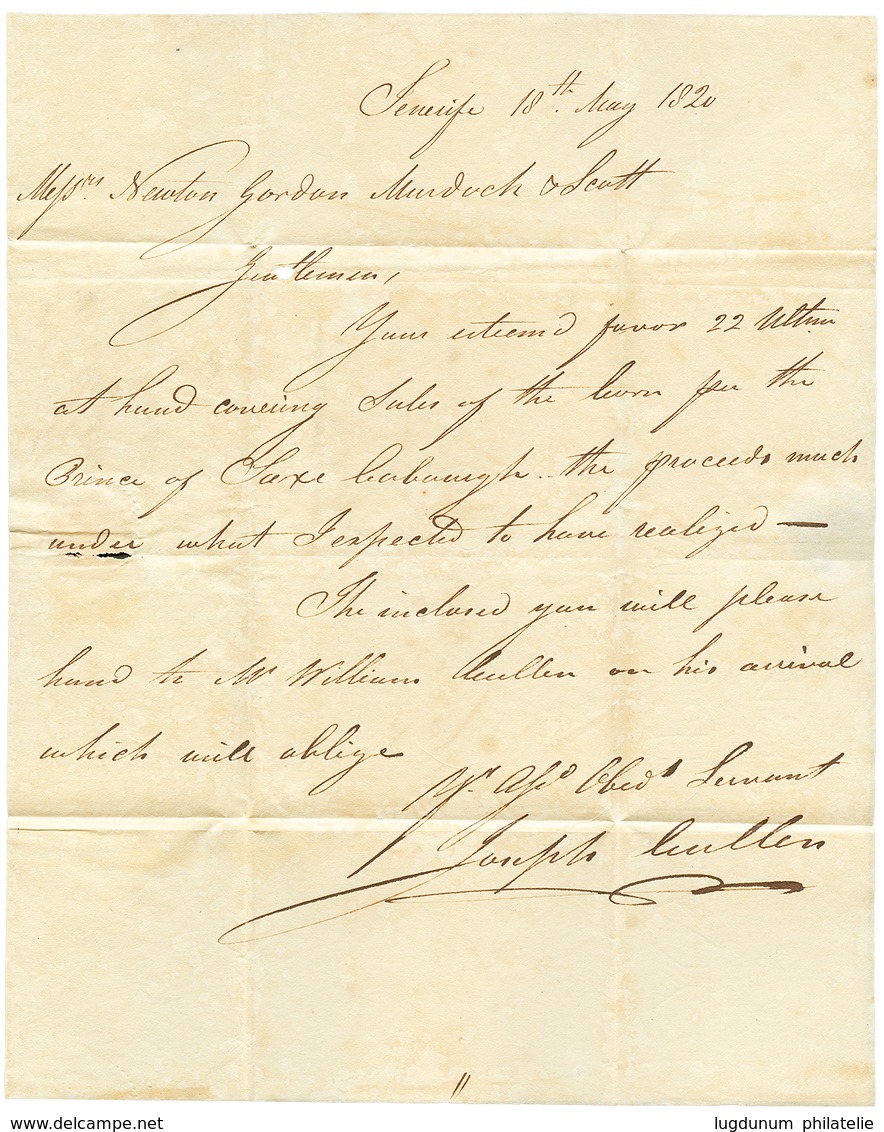 Tenerife 18th. May 1820
Messrs. Newton Gordon Murdoch & Scott
Gentlemen,
Your esteem'd favor 22 Ultmo
at hand covering Sales of the Corn per the
Prince of Saxe Cobourgh.. the proceeds much
under what I expected to have realized —
The inclosed you will please
hand to Mr William Cullen on his arrival
which will oblige
Yr. Obedt Servant
Joseph Cullen
www.delcampe.net
lugdunum philatelie